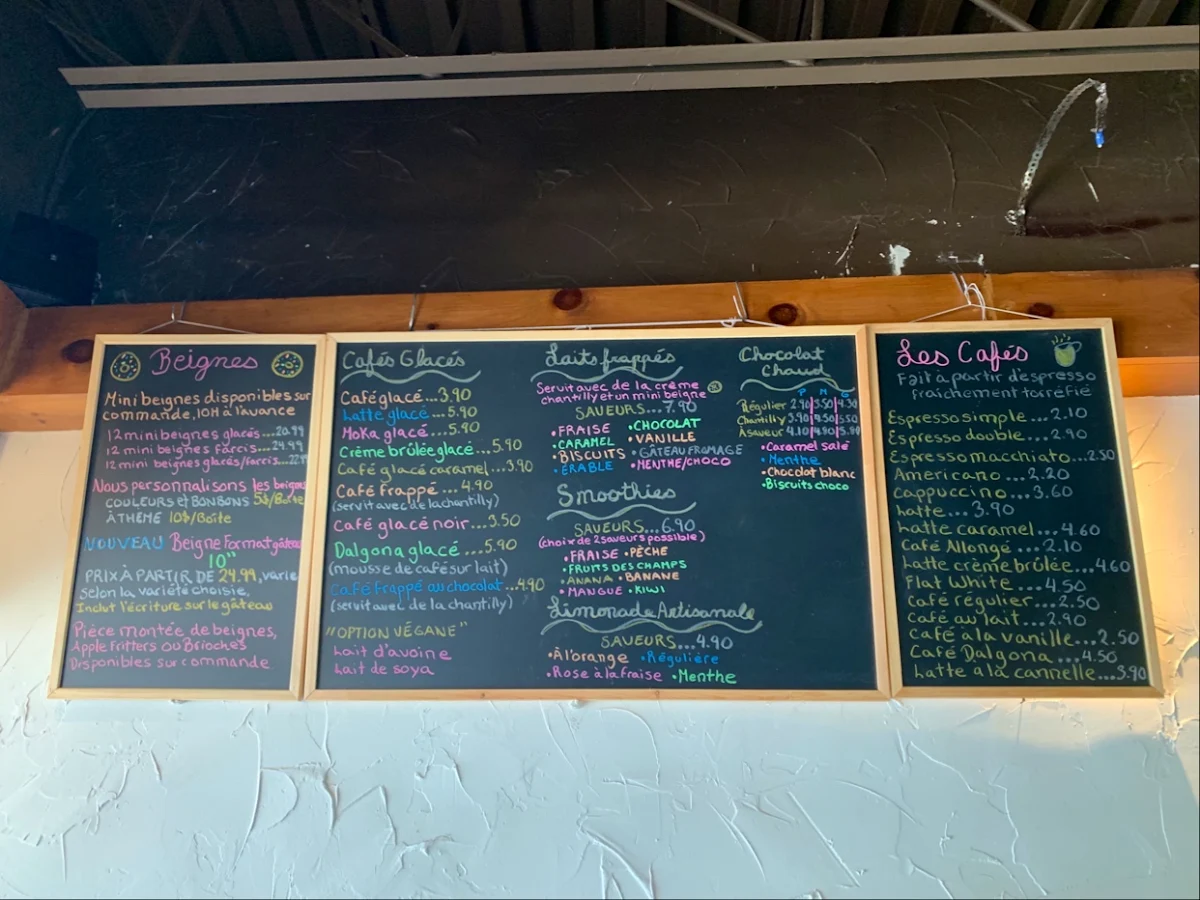 Beignes
Mini beignes disponibles sur
commande, 10H à l'avance
12 mini beignes glacés...20.99
12 mini beignes farcis...24.99
12 mini beignes glacés/farcis...
Nous personnalisons les beignes
COULEURS et BONBONS 5$/Boîte
À THÈME 10$/Boîte
NOUVEAU Beigne Format gâteau
10"
PRIX À PARTIR DE 24.99, varie
Selon la variété choisie,
Inclut l'écriture sur le gâteau
Pièce montée de beignes,
Apple Fritters ou Brioches
Disponibles sur commande
Cafés Glacés
Café glacé...3.90
Latte glacé...5.90
Moka glacé...5.90
Crème brûlée glacé...5.90
Café glacé caramel...3.90
Café frappé ...4.90
(servit avec de la chantilly)
Café glacé noir...3.50
Dalgona glacé...5.90
(mousse de café sur lait)
Café frappé au chocolat...4.90
(servit avec de la chantilly)
"OPTION VÉGANE"
Lait d'avoine
Lait de soya
Laits frappés
Servit avec de la crème
chantilly et un mini beigne
SAVEURS...7.90
•FRAISE •CHOCOLAT
•CARAMEL •VANILLE
•BISCUITS •GÂTEAU FROMAGE
•ÉRABLE •MENTHE/CHOCO
Smoothies
SAVEURS...6.90
(choix de 2 saveurs possible)
•FRAISE •PÊCHE
•FRUITS DES CHAMPS
•ANANA •BANANE
•MANGUE •KIWI
Limonade Artisanale
SAVEURS...4.90
•À l'orange •Régulière
•Rose à la fraise •Menthe
Chocolat
Chaud
P M G
Régulier 2.90 3.50 4.30
Chantilly 3.90 4.50 5.50
À saveur 4.10 4.90 5.90
•Caramel salé
•Menthe
•Chocolat blanc
•Biscuits choco
Les Cafés
Fait à partir d'espresso
fraîchement torréfié
Espresso simple...2.10
Espresso double...2.90
Espresso macchiato...2.50
Americano...2.20
Cappuccino...3.60
Latte...3.90
Latte caramel...4.60
Café Allongé...2.10
Latte crème brûlée...4.60
Flat White...4.50
Café régulier...2.50
Café au lait...2.90
Café à la vanille...2.50
Café Dalgona...4.50
Latte à la cannelle...3.90